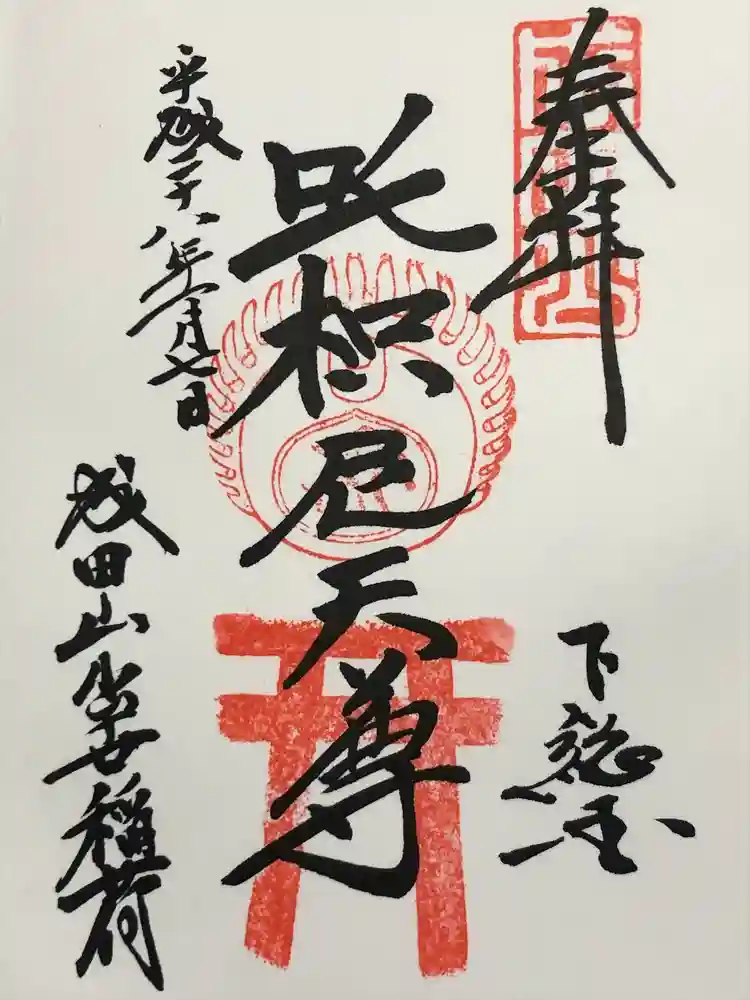 奉拝
下総国
吒枳尼天尊
平成二十八年一月七日
成田山出世稲荷